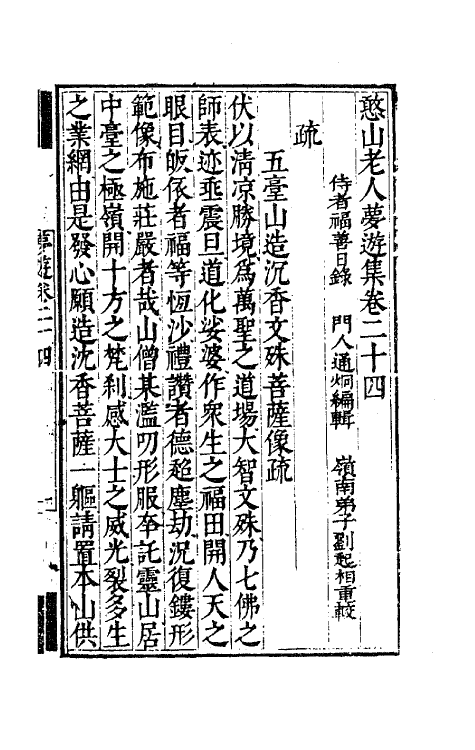 憨山老人夢遊集卷二十四
侍者福善日錄　門人通炯編輯　嶺南弟子劉起相重較
疏
五臺山造沉香文殊菩薩像疏
伏以清凉勝境爲萬聖之道場大智文殊乃七佛之
師表迹垂震旦道化娑婆作衆生之福田開人天之
眼目皈依者福等恆沙禮讚者德超塵劫況復鏤形
範像布施莊嚴者哉山僧某濫叨形服夲託靈山居
中臺之極嶺開十方之梵剎感大士之威光裂多生
之業網由是發心願造沈香菩薩一軀請置本山供
夢遊卷二十四
一